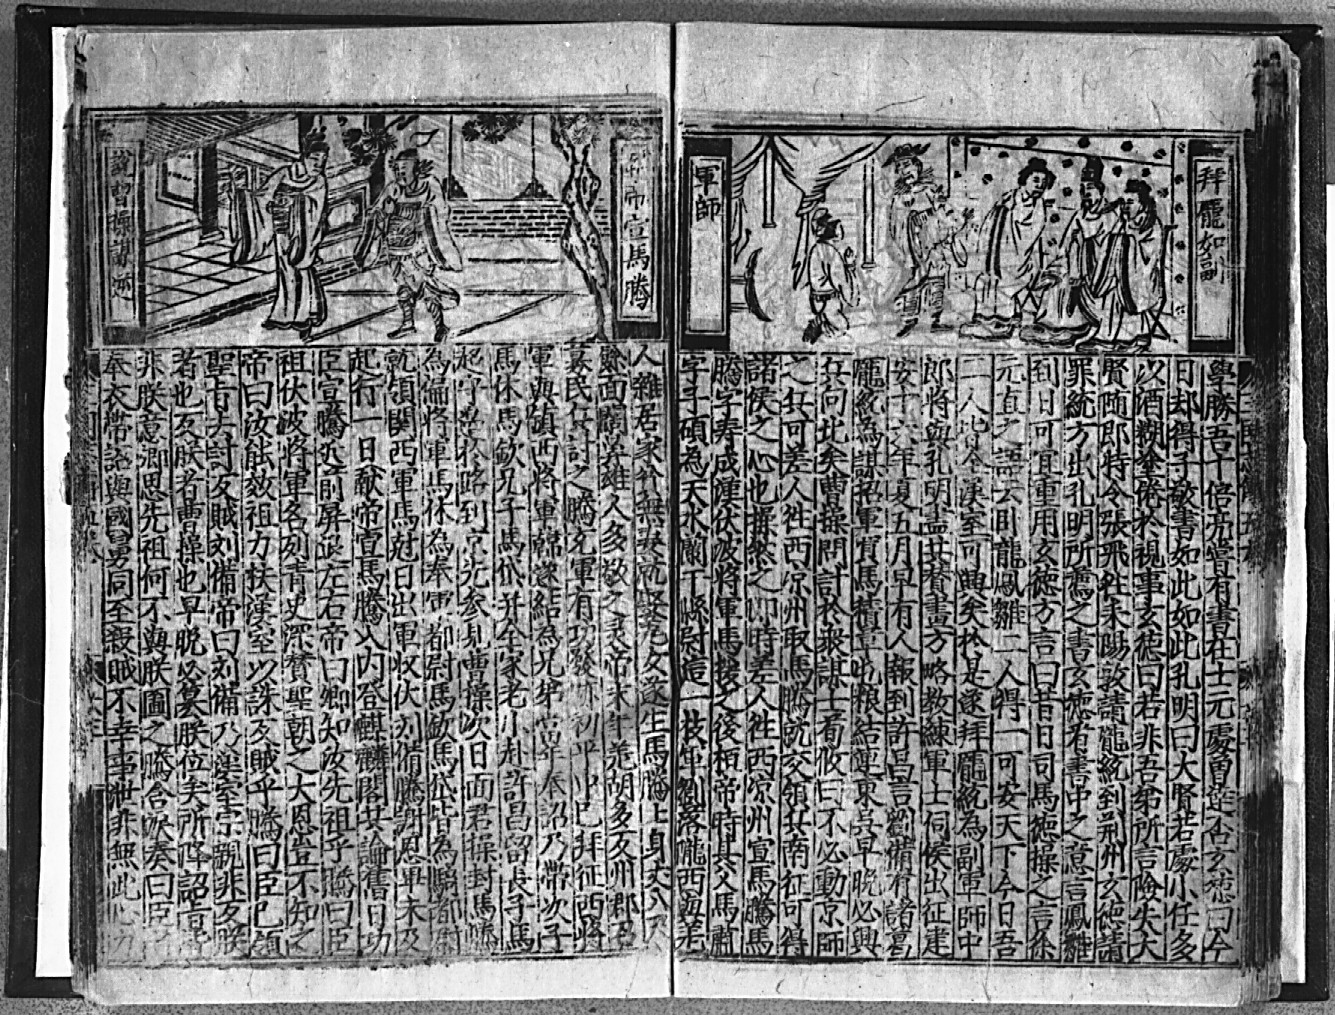 拜龐統副
軍師
學勝吾十倍亮嘗有書在士元處曾達否玄德曰今
日却得子敬書如此如此孔明曰大賢若處小任多
以酒糊塗倦於視事玄德曰若非吾弟所言險失大
賢隨即時令張飛往耒陽敦請龐統到荊州玄德請
罪統方出孔明所薦之書玄德看書中之意言鳳雛
到日可宜重用玄德方言曰昔日司馬德操之言徐
元直之語云卧龍鳳雛二人得一可安天下今日吾
二人皆全漢室可興矣於是遂拜龐統為副軍師中
郎將與孔明孟共賛畫方略教練軍士伺候出征建
安十六年夏五月早有人報到許昌言劉備有諸葛
龐統為謀招軍買馬積草屯粮結連東吳早晚必興
兵向北矣曹操聞計於衆謀士荀攸曰不必動京師
之兵可差人往西凉州取馬騰就交領兵南征可得
諸侯之心也操然之即時差人往西凉州宣馬騰馬
騰字寿成漢伏波將軍馬援之後桓帝時其父馬肅
字子碩為天水蘭干縣尉這一枝軍劉落隴西與羗
帝宣馬騰
說曹操謀逆
人雜居家貧無妻就娶羗女遂生馬騰騰身丈八尺
面闊鼻雄人多敬之灵帝末年羗胡多反州郡召
募民兵討之騰為軍有功初平中巳拜征西將
軍與鎮西將軍韓遂結為兄弟當年奉詔乃帶次子
馬休馬鉄兄子馬岱并全家老小赴許昌留長子馬
超守邊於路到京先參見曹操次日面君操封馬騰
為偏將軍馬休為奉軍都尉馬鉄馬岱皆為騎都尉
就領関西軍馬尅日出軍收伏刘備騰謝恩畢未及
起行一日献帝宣馬騰入内登麒麟閣共論舊日功
臣宣騰近前屏退左右帝曰卿知汝先祖乎騰曰臣
祖伏波將軍名列青史深賛聖朝之大恩豈不知之
帝曰汝能效祖力扶漢室以誅反賊乎騰曰臣已領
聖旨去討反賊刘備帝曰刘備乃漢室宗親非反朕
者也反朕者曹操也早晚必篡朕位矣所降詔旨皆
非朕意卿思先祖何不與朕圖之騰含淚奏曰臣
奉衣帶詔與國舅同至殺賊不幸事泄非無此心力